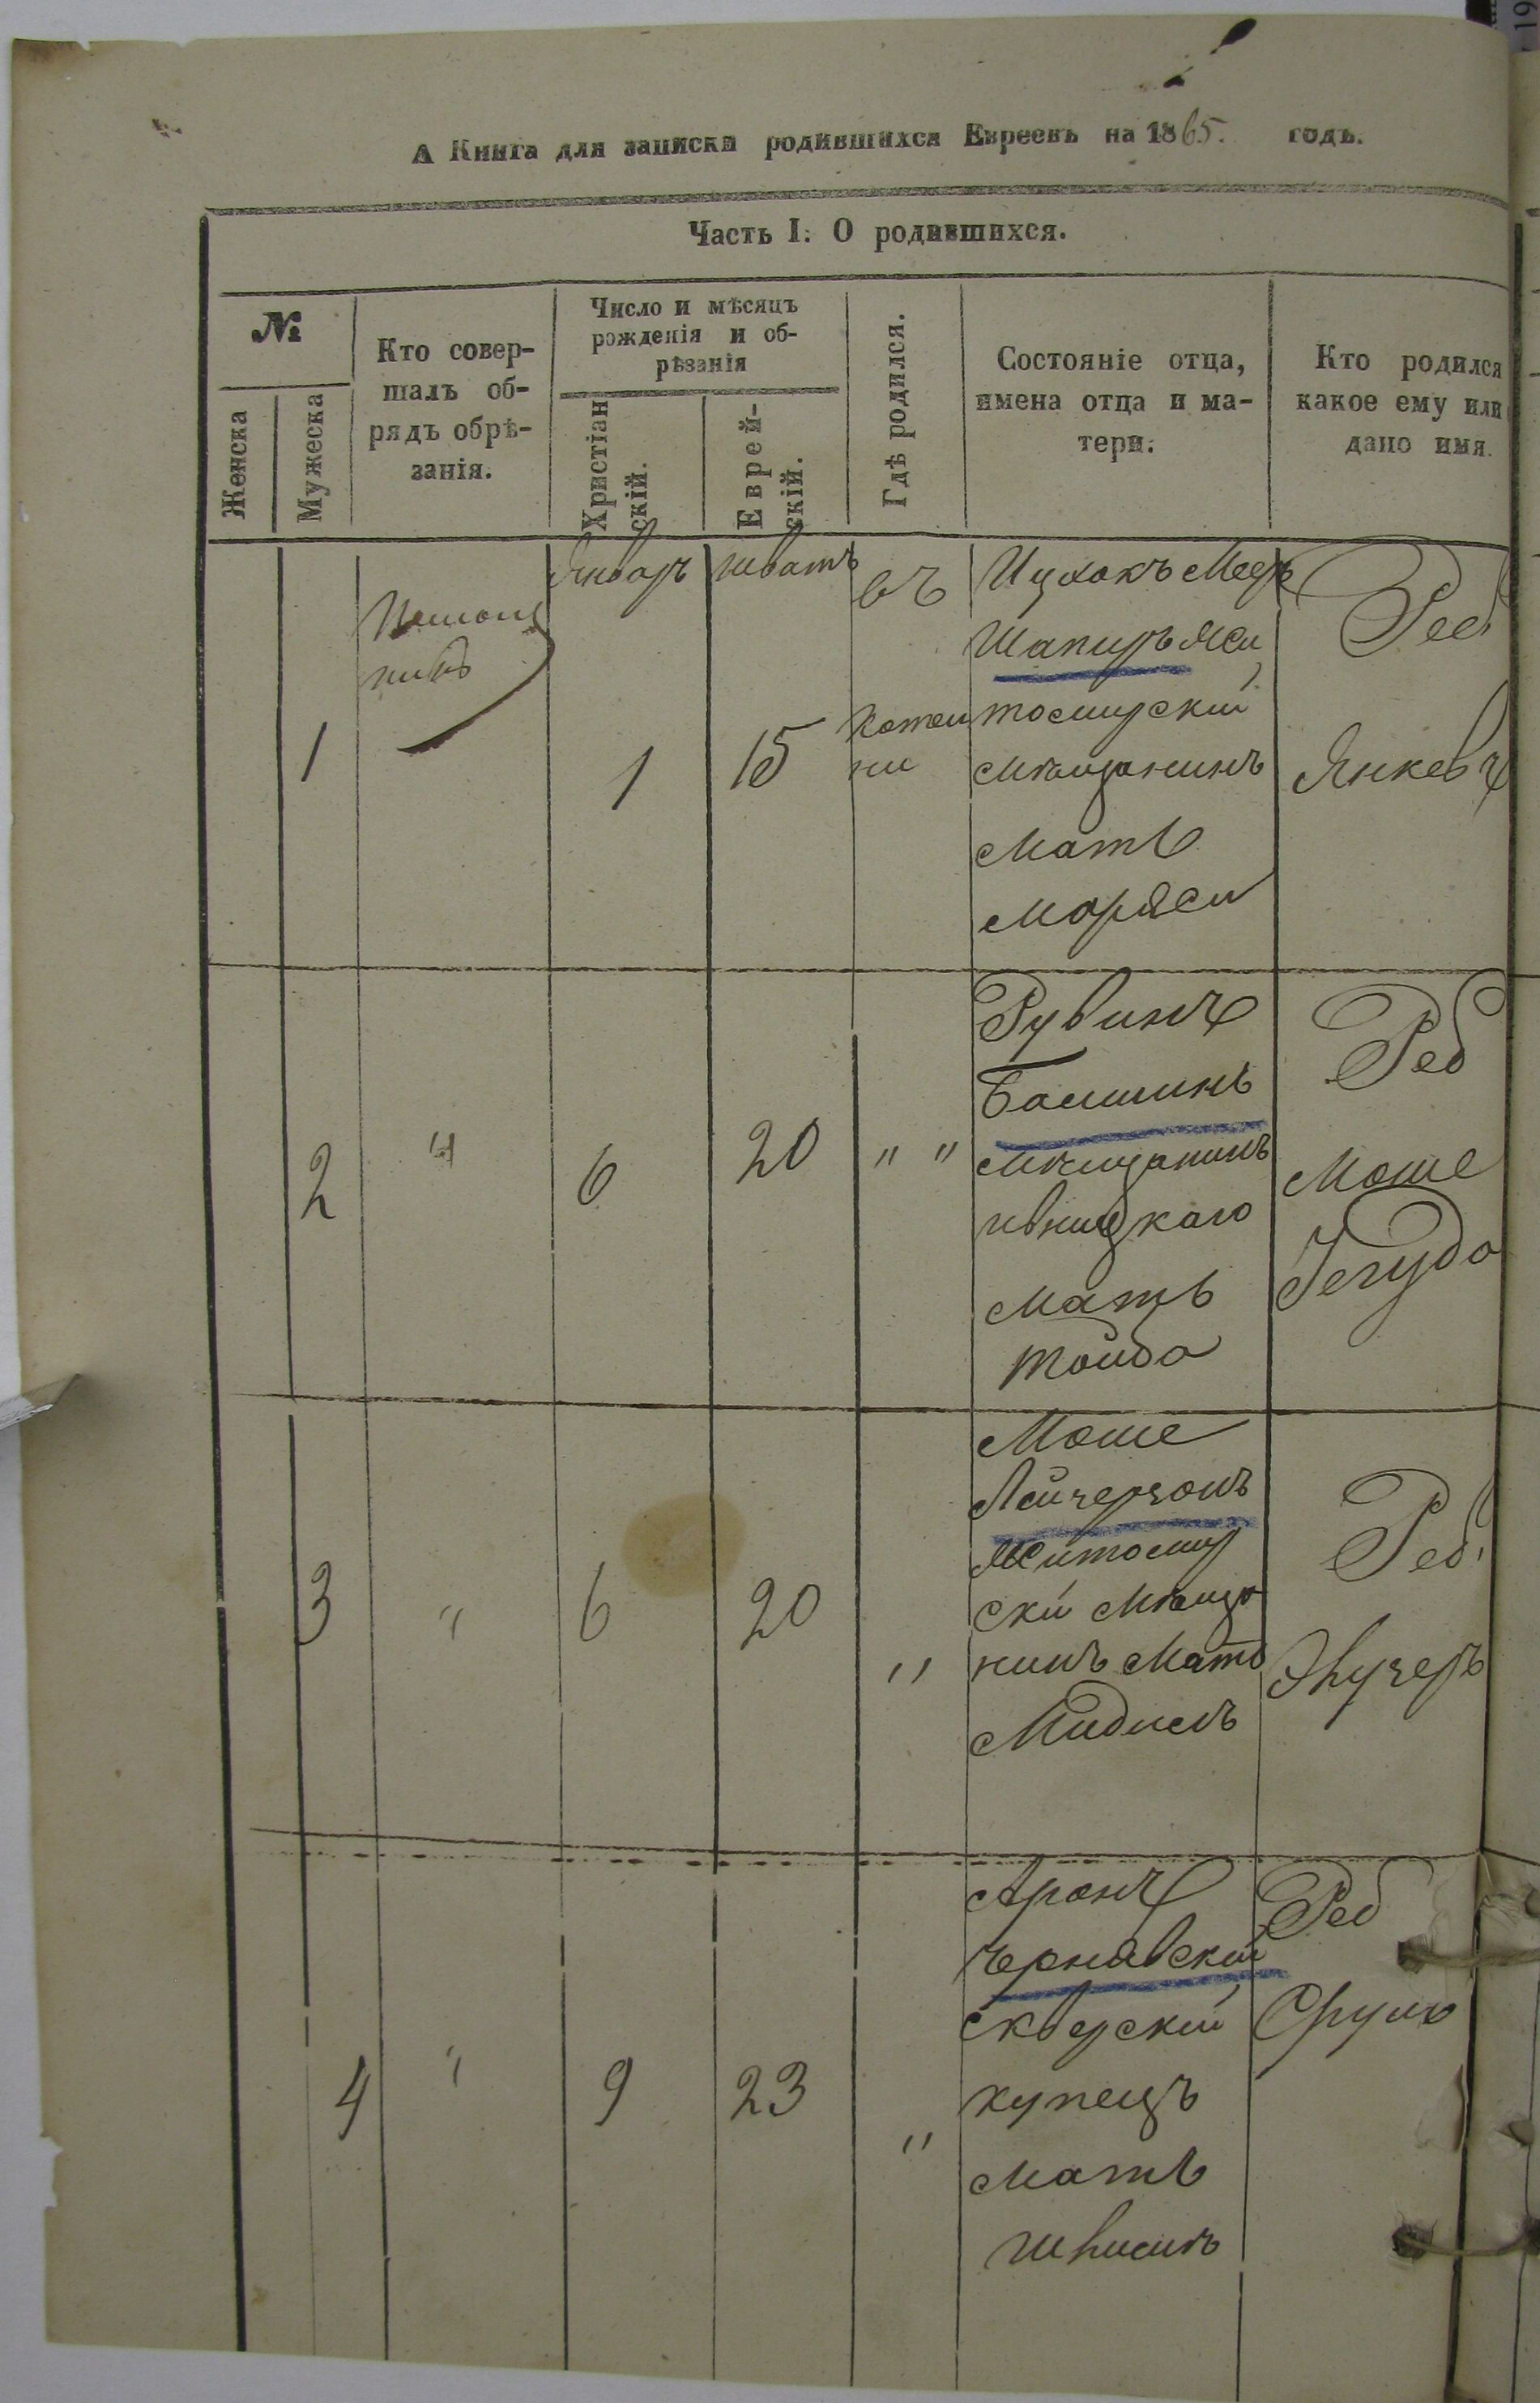 А Книга для записки родившихся Евреевъ на 1865. годъ.
Часть I. О родившихся.
№
Женска
Мужеска
Кто совер-
шалъ об-
рядъ обрѣ-
занія.
Число и мѣсяцъ
рожденія и об-
рѣзанія
Христіан
скій.
Еврей-
скій.
Гдѣ родился.
Состояніе отца,
имена отца и ма-
тери.
Кто родился
какое ему или
дано имя.
Январь
шватъ
1
1
15
въ
Ицхокъ Меер
Шапиръ Жи
томирскій
мѣщанинъ
Мать
Маряси
Реб
Янкевъ
2
"
6
20
" "
Рувинъ
мѣщанинъ
Мать
тойба
Реб
Моше
Iегуда
3
"
6
20
"
Моше
Житомир
скій Мѣща
нинъ Мать
Реб
4
"
9
23
"
Аронъ
Чернявскій
сквирскій
купецъ
Мать
Реб
Сруль